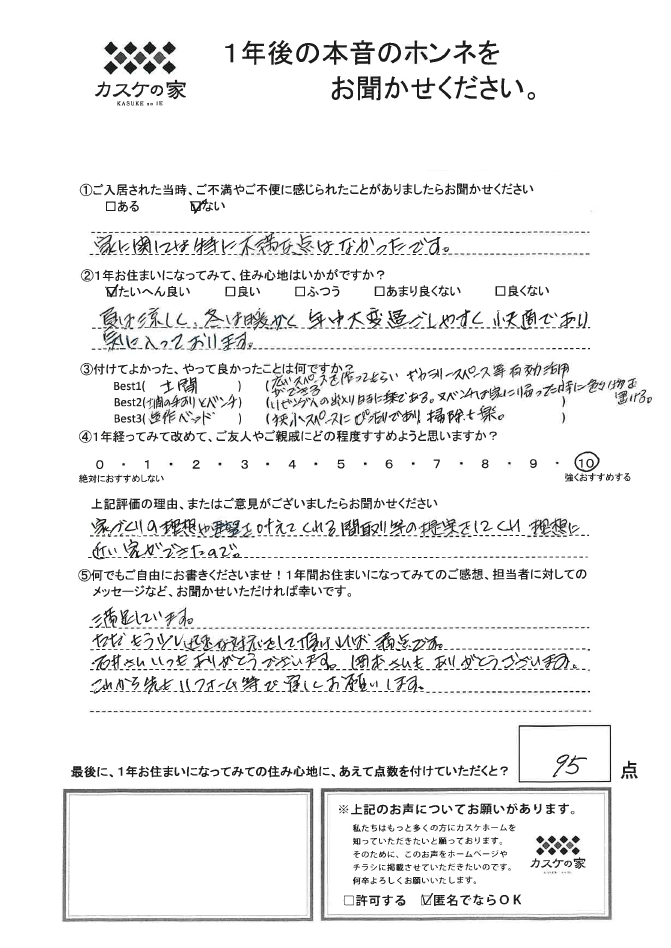 カスケの家
KASUKE no IE
1年後の本音のホンネを
お聞かせください。
①ご入居された当時、ご不満やご不便に感じられたことがありましたらお聞かせください
□ある ☑ない
家に関しては特に不満な点はなかったです。
②1年お住まいになってみて、住み心地はいかがですか？
☑たいへん良い □良い □ふつう □あまり良くない □良くない
夏は涼しく、冬は暖かく 年中大変過ごしやすく 快適であり
気に入っております。
③付けてよかった、やって良かったことは何ですか？
Best1( 土間 ) (広いスペースを作ってもらい ファミリースペース等有効活用
ができる
Best2(土間の手すりとベンチ) (リビングへの出入り時に楽である。又ベンチは家に帰った時に色々物を
置ける。)
Best3(造作ベッド) (狭小スペースにぴったりであり 掃除も楽。)
④1年経ってみて改めて、ご友人やご親戚にどの程度すすめようと思いますか？
0 ・ 1 ・ 2 ・ 3 ・ 4 ・ 5 ・ 6 ・ 7 ・ 8 ・ 9 ・ 10
絶対におすすめしない 強くおすすめする
上記評価の理由、またはご意見がございましたらお聞かせください
家づくりの理想や要望を叶えてくれる間取り等の提案をしてくれ 理想に
近い家ができたので。
⑤何でもご自由にお書きくださいませ！1年間お住まいになってみてのご感想、担当者に対しての
メッセージなど、お聞かせいただければ幸いです。
満足しています。
ただもう少し迅速な対応をして頂ければ 満点です。
石井さんいつもありがとうございます。岡本さんもありがとうございます。
これから先もリフォーム等で宜しくお願いします。
最後に、1年お住まいになってみての住み心地に、あえて点数を付けていただくと？ 95 点
※上記のお声についてお願いがあります。
私たちはもっと多くの方にカスケホームを
知っていただきたいと願っております。
そのために、このお声をホームページや
チラシに掲載させていただきたいのです。
何卒よろしくお願いいたします。
カスケの家
KASUKE no IE
□許可する ☑匿名でならOK